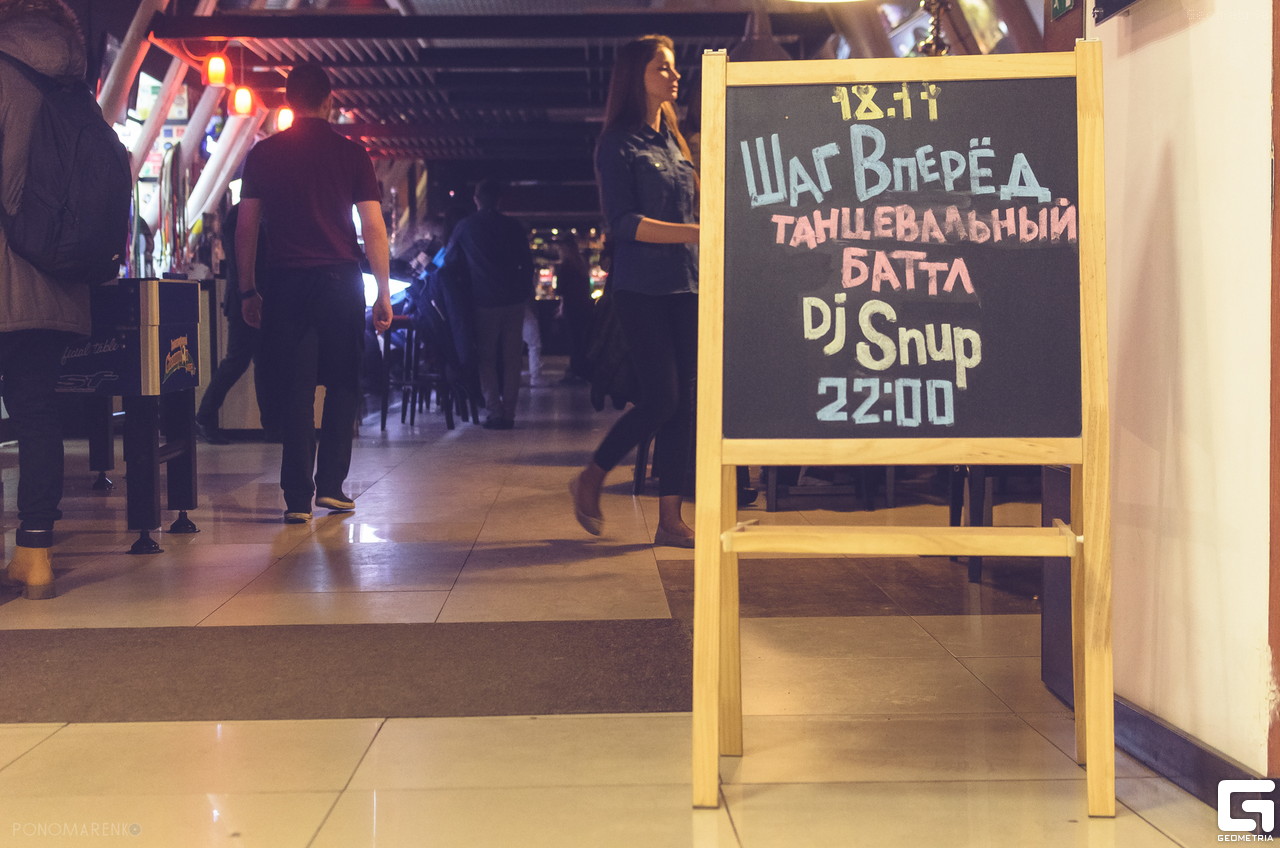 18.11
Шаг Вперёд
танцевальный
баттл
Dj Snup
22:00
PONOMARENKO
GEOMETRIA